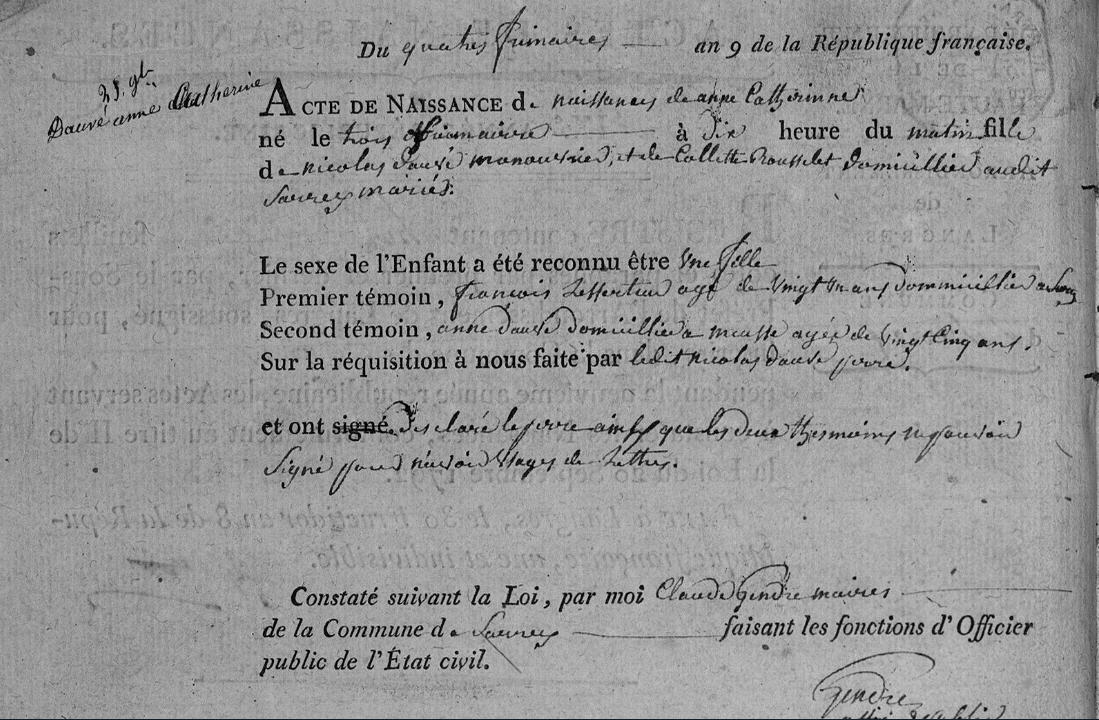 Du quatres frimaires an 9 de la République française.
25. gb.
Dauvé anne Catherine
ACTE DE NAISSANCE de naissances de anne Catherinne
né le trois frimairre à dix heure du matin fille
de nicolas dauvé manouvrier, et de Collette Rousselet domicillier audit
Sarrey mariés.
Le sexe de l'Enfant a été reconnu être une fille
Premier témoin, françois agé de vingt un ans dommicillier a Sarrey
Second témoin, anne dauvé domicillié a meusse agée de vingt Cinq ans.
Sur la réquisition à nous faite par ledit nicolas dauvé perre.
et ont signé. desclaré le perre ainsy que les deux thesmoins ne pouvoir
signé pour n'avoir usages de Lettres.
Constaté suivant la Loi, par moi Claude Gendre maires
de la Commune de Sarrey faisant les fonctions d'Officier
public de l'État civil.
Gendre